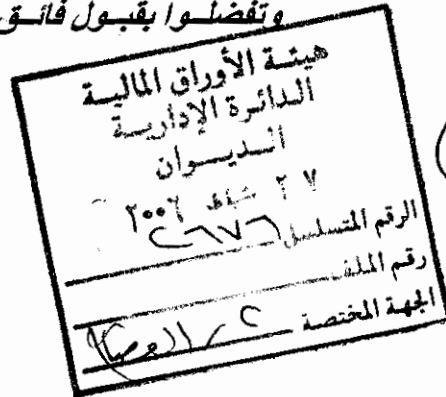 وتفضلوا بقبول فائق
هيئة الأوراق المالية
الدائرة الإدارية
الديوان
٢٧ شباط ٢٠٠٦
الرقم المتسلسل ٢٦٧٦
رقم الملف
الجهة المختصة